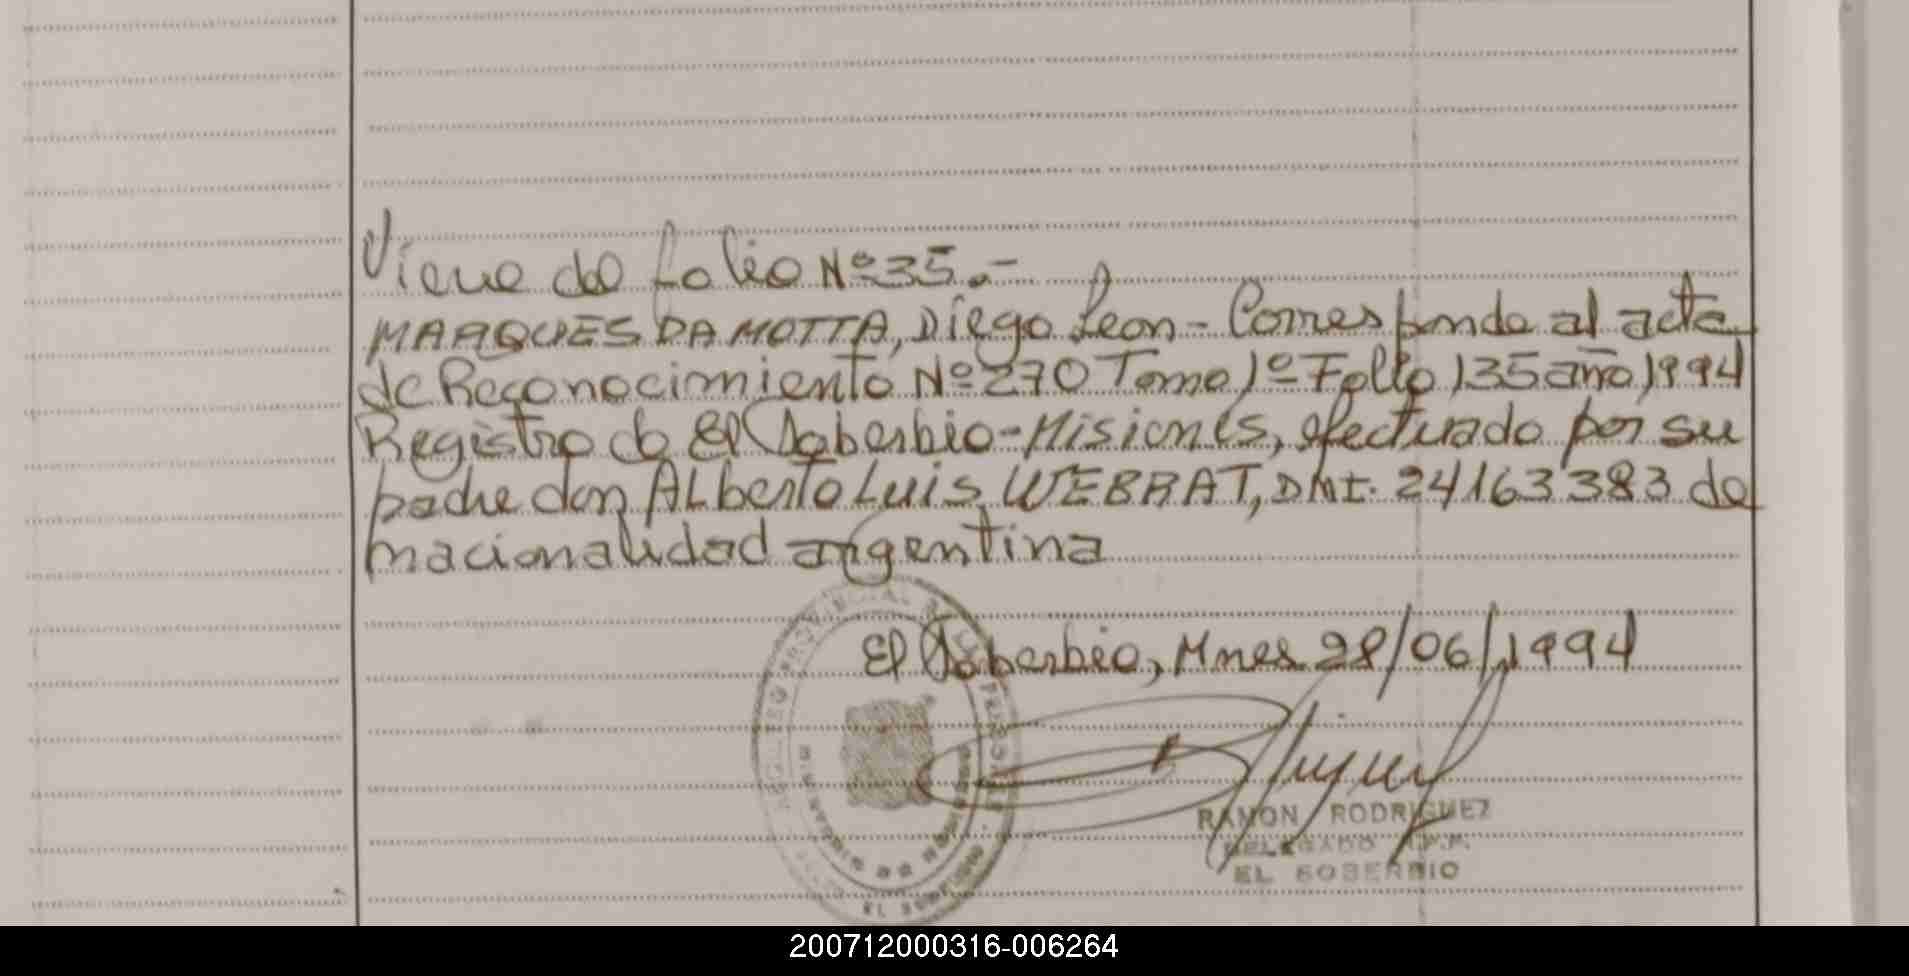 Viene del folio Nº 35.-
MARQUES DA MOTTA, Diego Leon - Corresponde al acta
de Reconocimiento Nº 270 Tomo 1º Folio 135 año 1994
Registro de El Soberbio-Misiones, efectuado por su
padre don ALberto Luis WEBRAT, DNI. 24163383 de
nacionalidad argentina
El Soberbio, Mnes 28/06/1994
RAMON RODRIGUEZ
DELEGADO
EL SOBERBIO
200712000316-006264